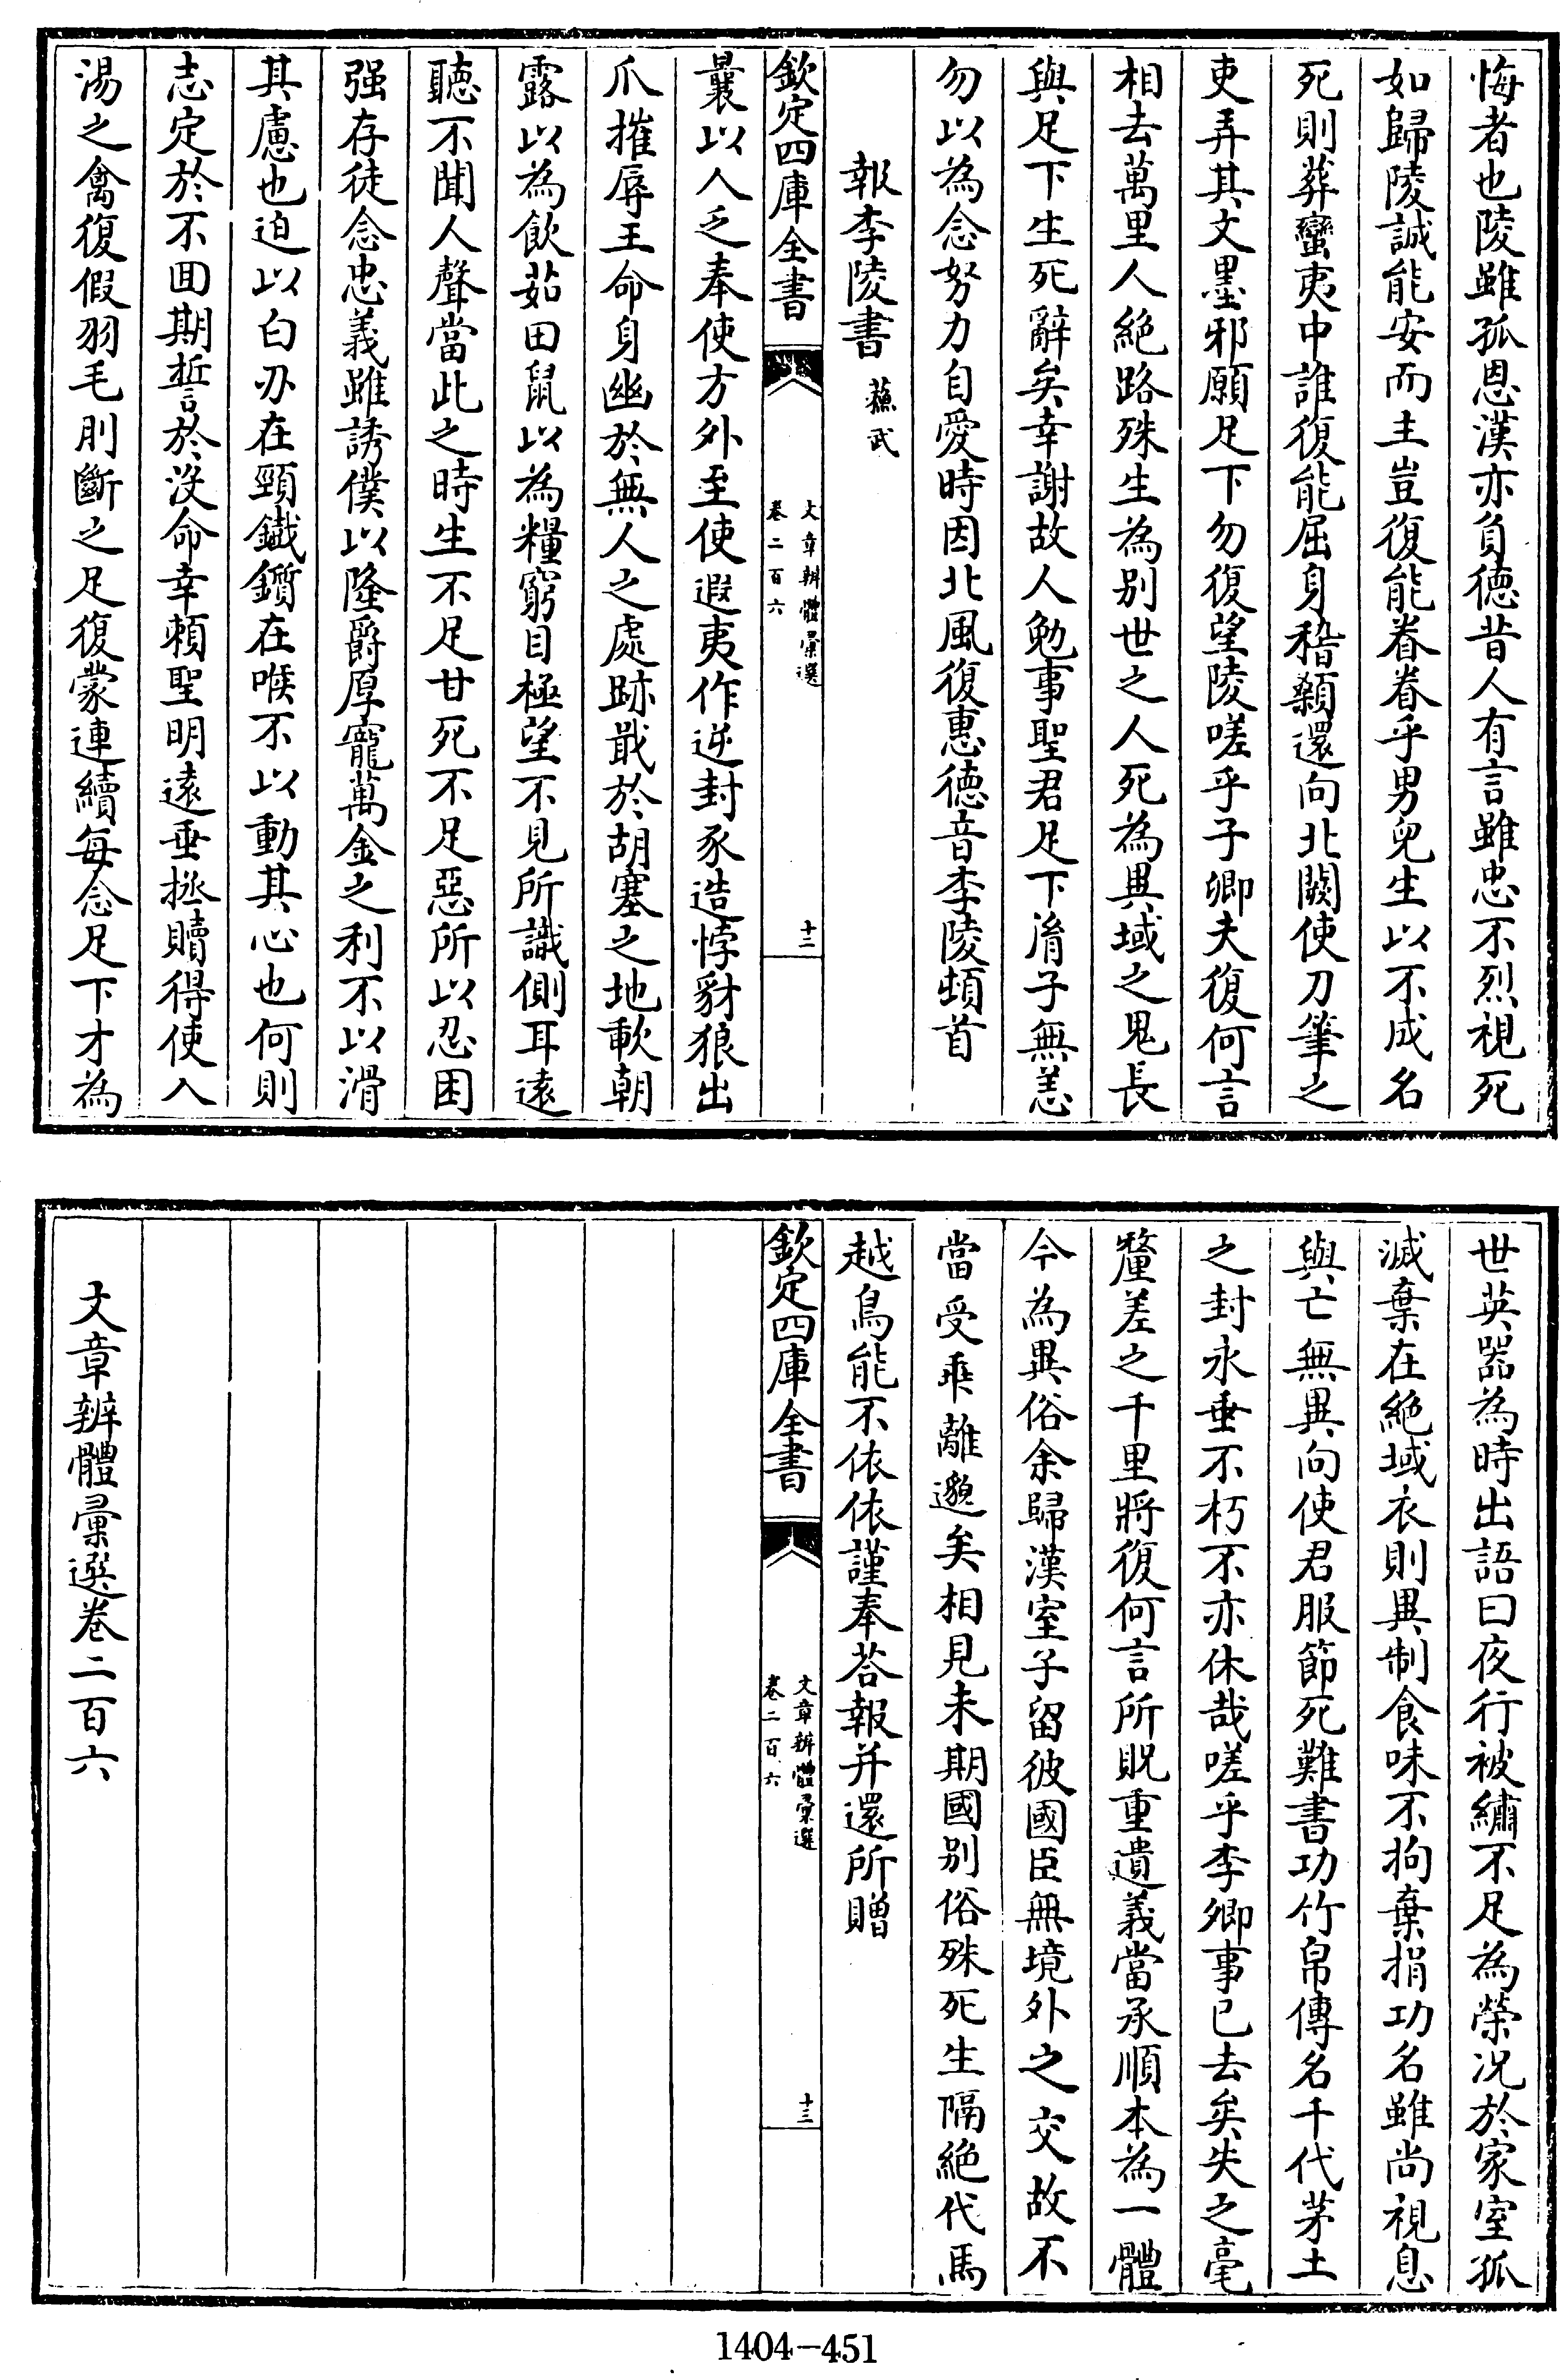 悔者也陵雖孤恩漢亦負徳昔人有言雖忠不烈視死
如歸陵誠能安而主豈復能眷眷乎男兒生以不成名
死則葬蠻夷中誰復能屈身稽顙還向北闕使刀筆之
吏弄其文墨邪願足下勿復望陵嗟乎子卿夫復何言
相去萬里人絶路殊生為别世之人死為異域之鬼長
與足下生死辭矣幸謝故人勉事聖君足下㣧子無恙
勿以為念努力自愛時因北風復惠徳音李陵頓首
報李陵書 蘇武
欽定四庫全書
文章辨體彚選
卷二百六
十二
曩以人乏奉使方外至使遐夷作逆封豕造悖豺狼出
爪摧辱王命身幽於無人之處跡戢於胡塞之地歃朝
露以為飲茹田鼠以為糧窮目極望不見所識側耳遠
聽不聞人聲當此之時生不足甘死不足惡所以忍困
强存徒念忠義雖誘僕以隆爵厚寵萬金之利不以滑
其慮也迫以白刃在頸鐵鑕在喉不以動其心也何則
志定於不囬期誓於沒命幸頼聖明遠垂拯贖得使入
湯之禽復假羽毛刖斷之足復蒙連續每念足下才為
世英器為時出語曰夜行被繡不足為榮况於家室孤
滅棄在絶域衣則異制食味不拘棄捐功名雖尚視息
與亡無異向使君服節死難書功竹帛傳名千代茅土
之封永垂不朽不亦休哉嗟乎李卿事已去矣失之毫
釐差之千里將復何言所貺重遺義當承順本為一體
今為異俗余歸漢室子留彼國臣無境外之交故不
當受乖離邈矣相見未期國别俗殊死生隔絶代馬
越鳥能不依依謹奉荅報并還所贈
欽定四庫全書
文章辨體彚選
卷二百六
十三
文章辨體彚選卷二百六
1404-451